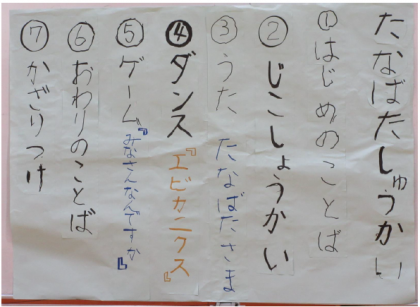 たなばたしゅうかい
①はじめのことば
②じこしょうかい
③うた たなばたさま
④ダンス『エビカニクス』
⑤ゲーム『みなさんなんですか』
⑥おわりのことば
⑦かざりつけ